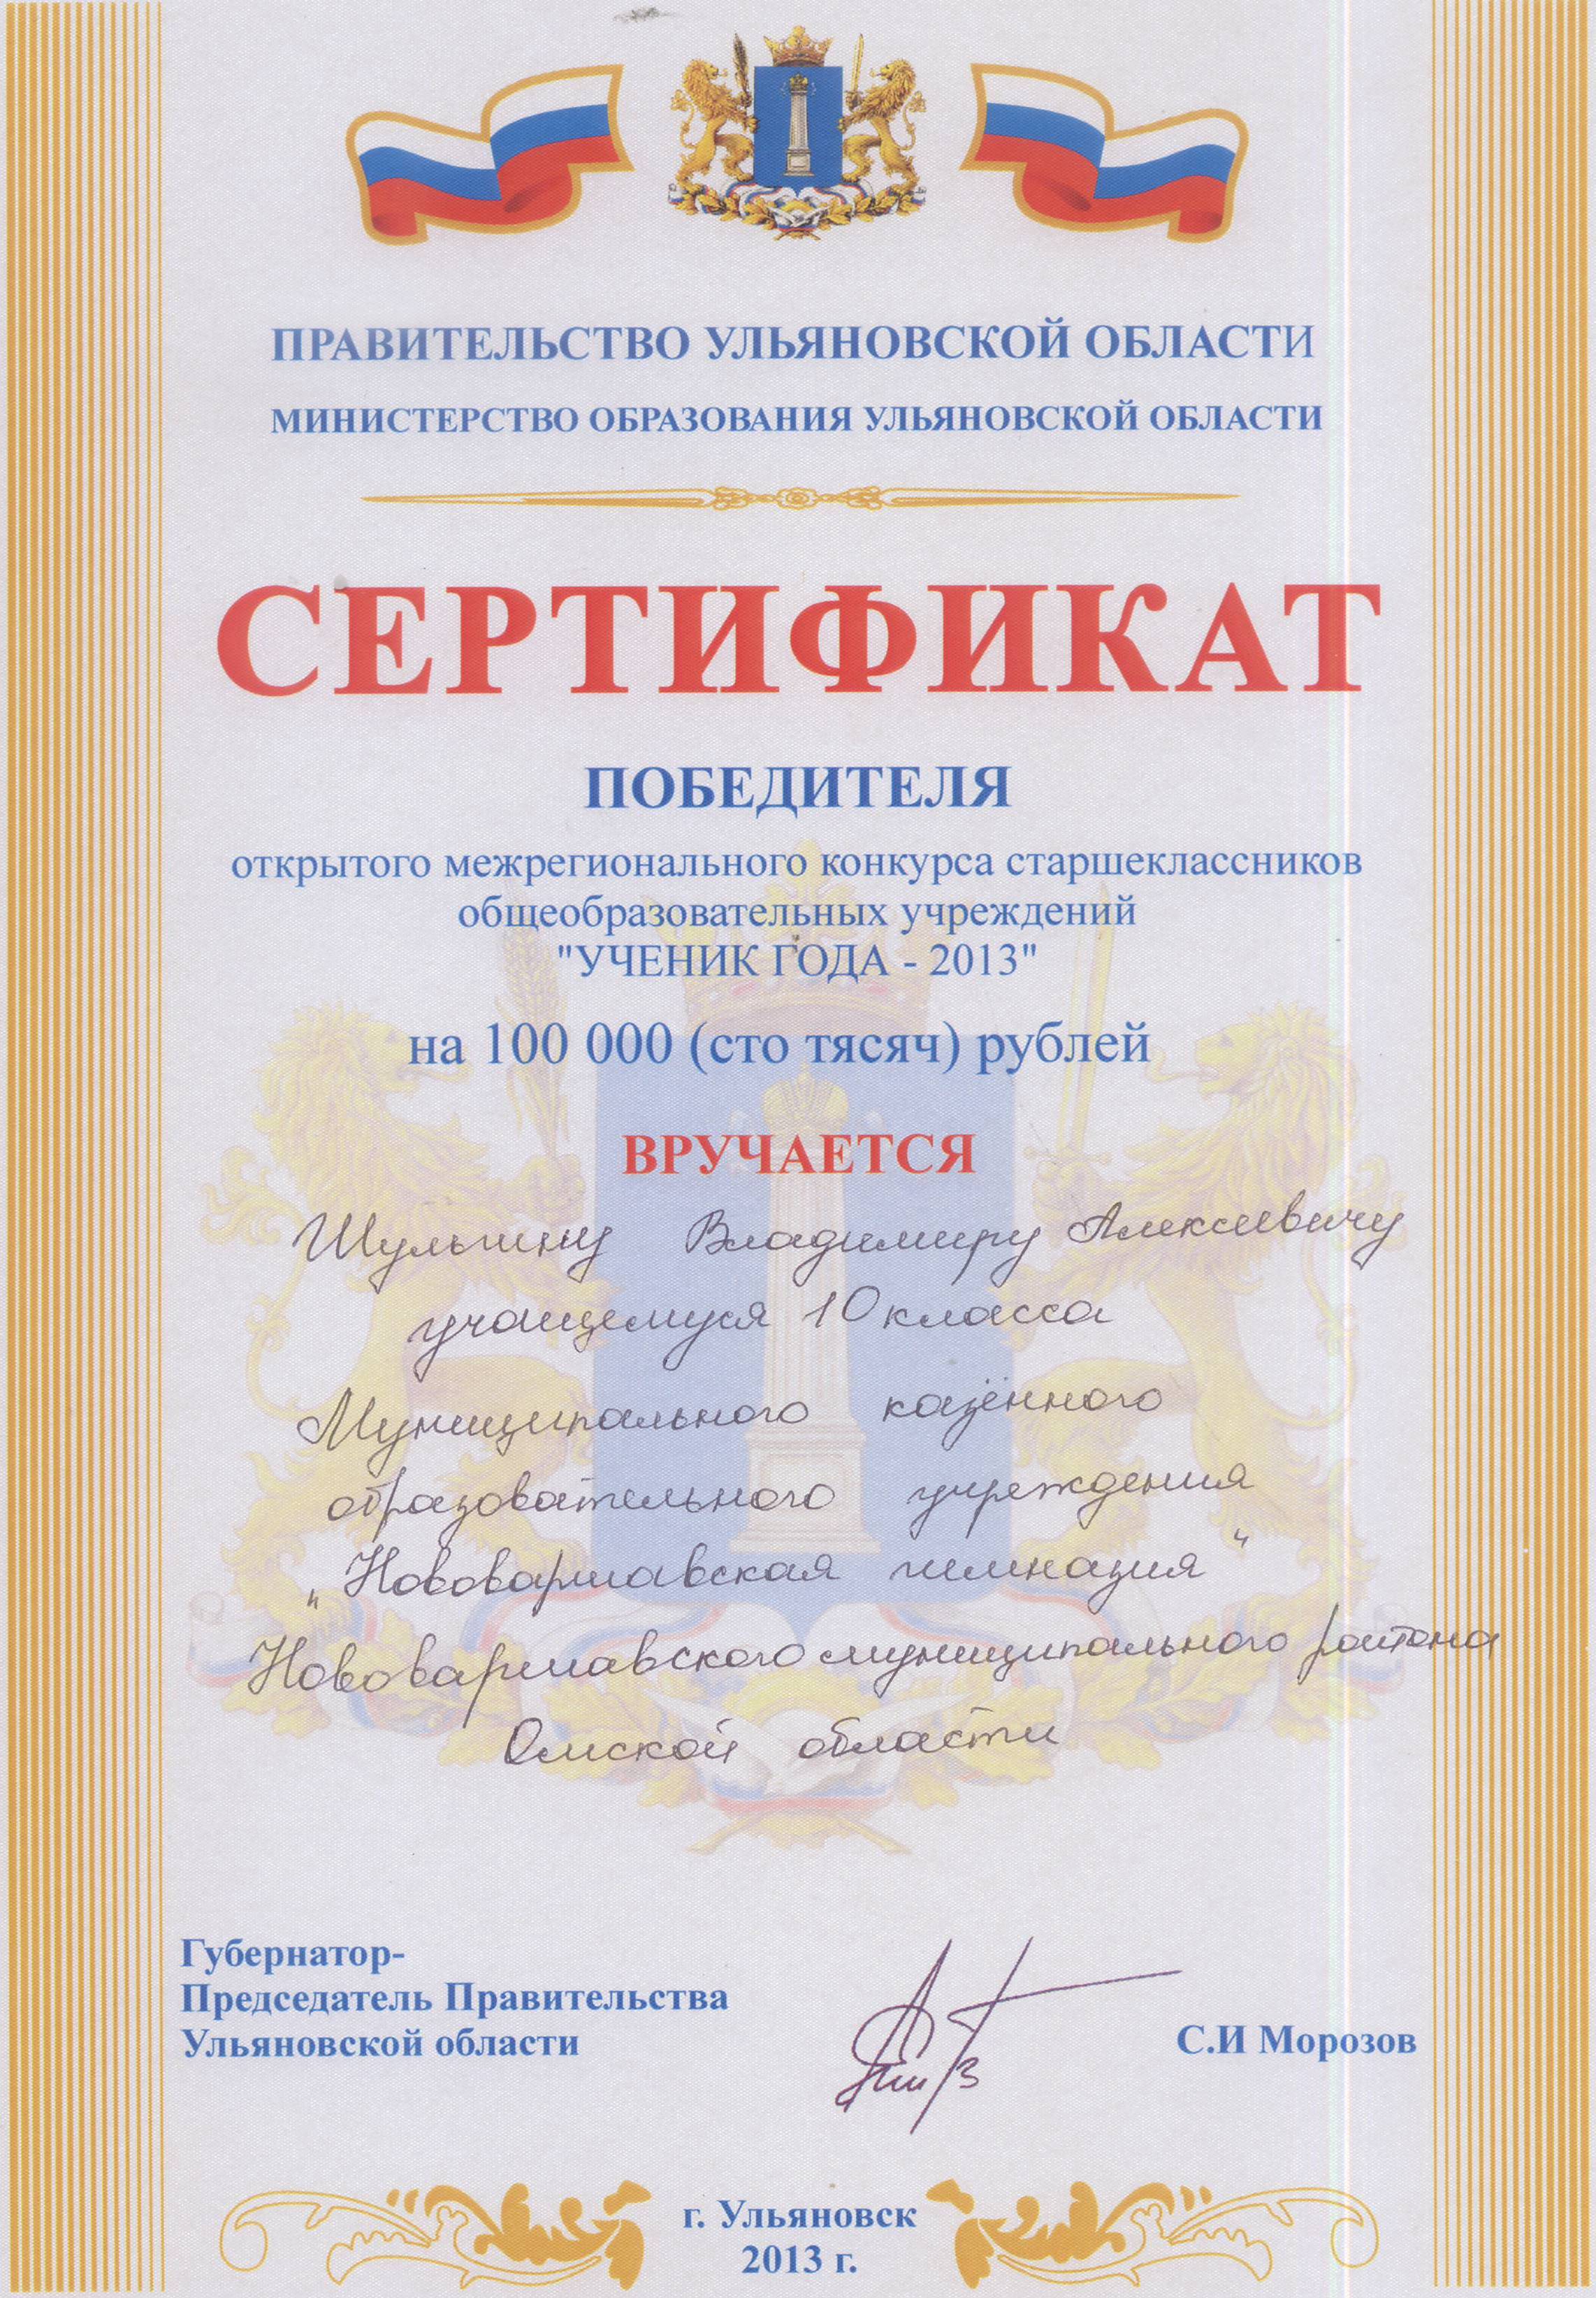 ПРАВИТЕЛЬСТВО УЛЬЯНОВСКОЙ ОБЛАСТИ
МИНИСТЕРСТВО ОБРАЗОВАНИЯ УЛЬЯНОВСКОЙ ОБЛАСТИ
СЕРТИФИКАТ
ПОБЕДИТЕЛЯ
открытого межрегионального конкурса старшеклассников
общеобразовательных учреждений
"УЧЕНИК ГОДА - 2013"
на 100 000 (сто тясяч) рублей
ВРУЧАЕТСЯ
Шульгину Владимиру Алексеевичу
учащемуся 10 класса
Муниципального казённого
образовательного учреждения
„Нововаршавская гимназия“
Нововаршавского муниципального района
Омской области
Губернатор-
Председатель Правительства
Ульяновской области
С.И Морозов
г. Ульяновск
2013 г.